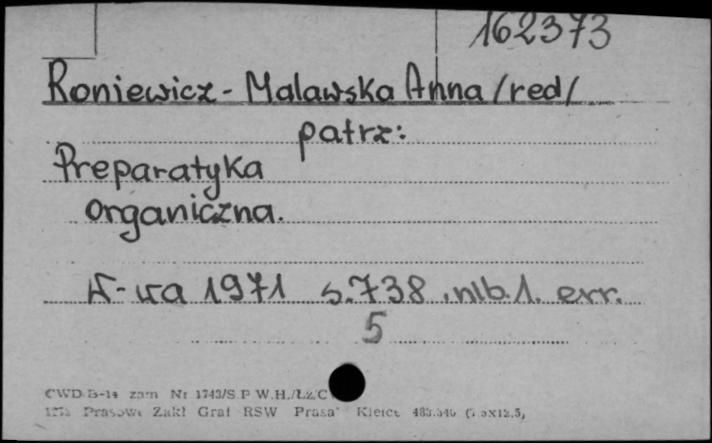 162373
Roniewicz-Malawska Anna /red/
patrz:
Preparatyka
organiczna.
W-wa 1971 s.738, nlb.1. err.
5
CWD B-14 zam Nr 1743/S P W.H./Łz/C
Prasowe Zakł Graf RSW Prasa" Kielce